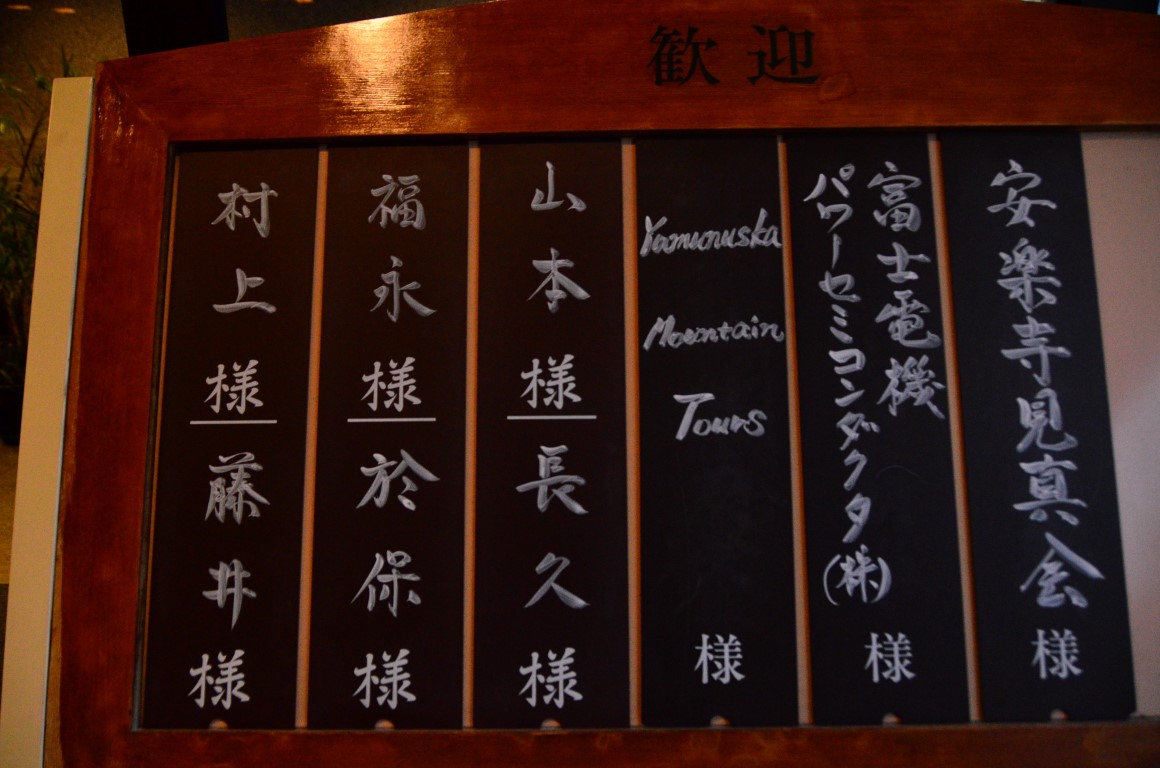 歓迎
安楽寺見真会 様
富士電機
パワーセミコンダクタ(株) 様
Yamunuska
Mountain
Tours
様
山本様
長久様
福永様
於保様
村上様
藤井様